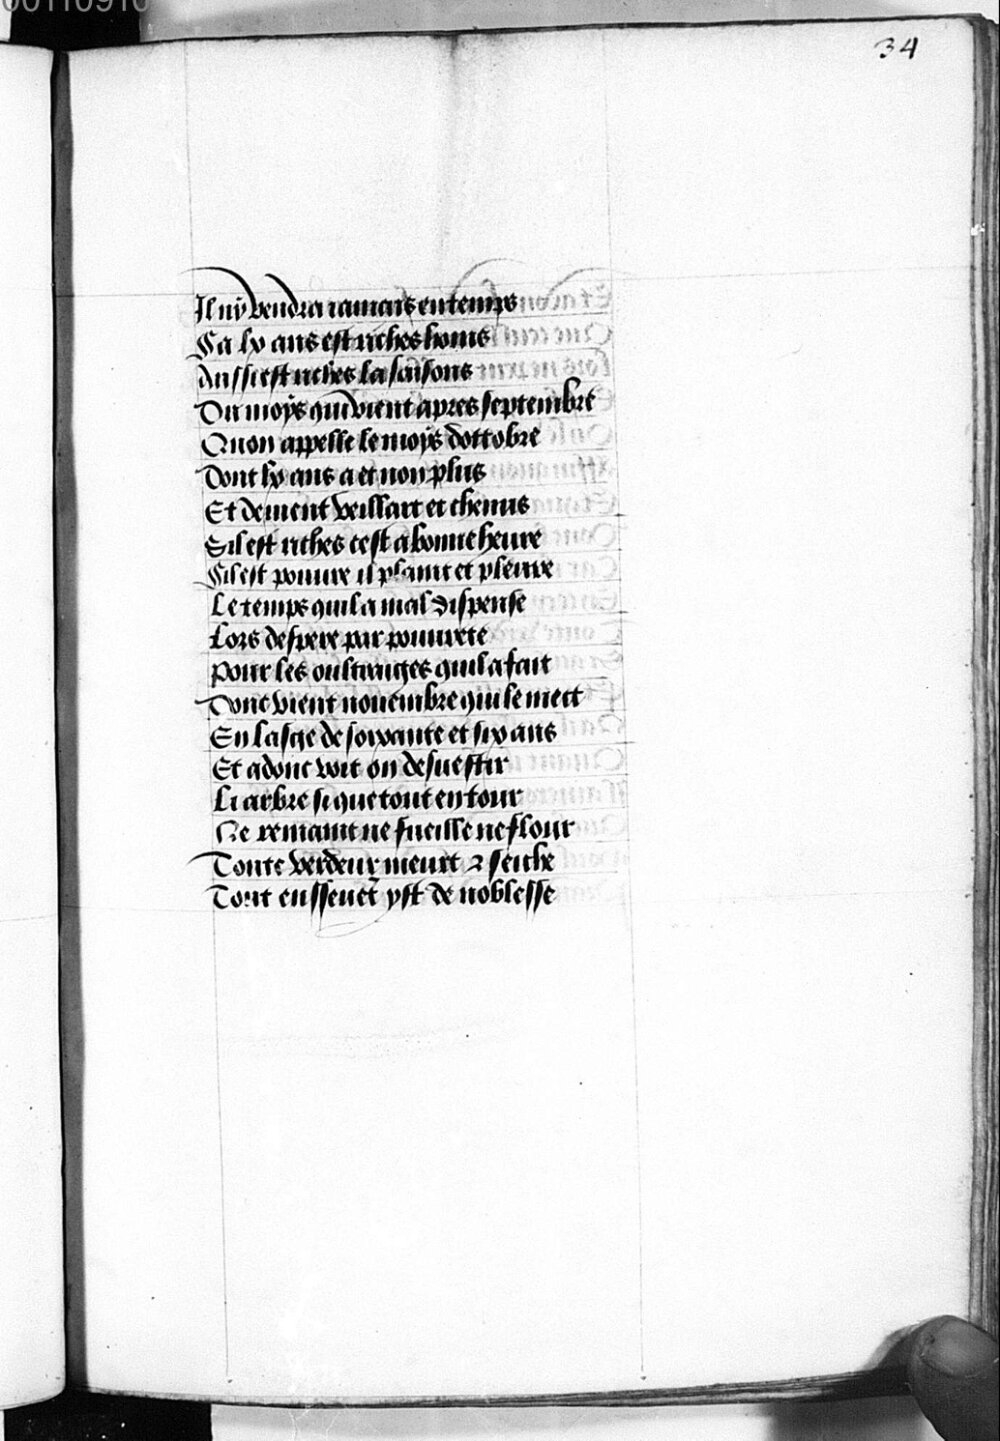 00110910
34
Il ny vendra iamais en temps
Sa lx ans est riches homs
Aussi est riches la saisons
Du moys qui vient apres septembre
Quon appelle le moys dottobre
Dont lx ans a et non plus
Et devient veillart et chenus
Sil est riches cest a bonne heure
Sil est pouure il plaint et pleure
Le temps quil a mal dispense
Lors despere par pouurete
Pour les oultraiges quil a fait
Donc vient nouembre qui le mect
En laage de soixante et six ans
Et adonc voit on desuestir
Li arbre si que tout en tour
Ne remaint ne fueille ne flour
Toute verdeur meurt ⁊ seiche
Tout enssement yst de noblesse